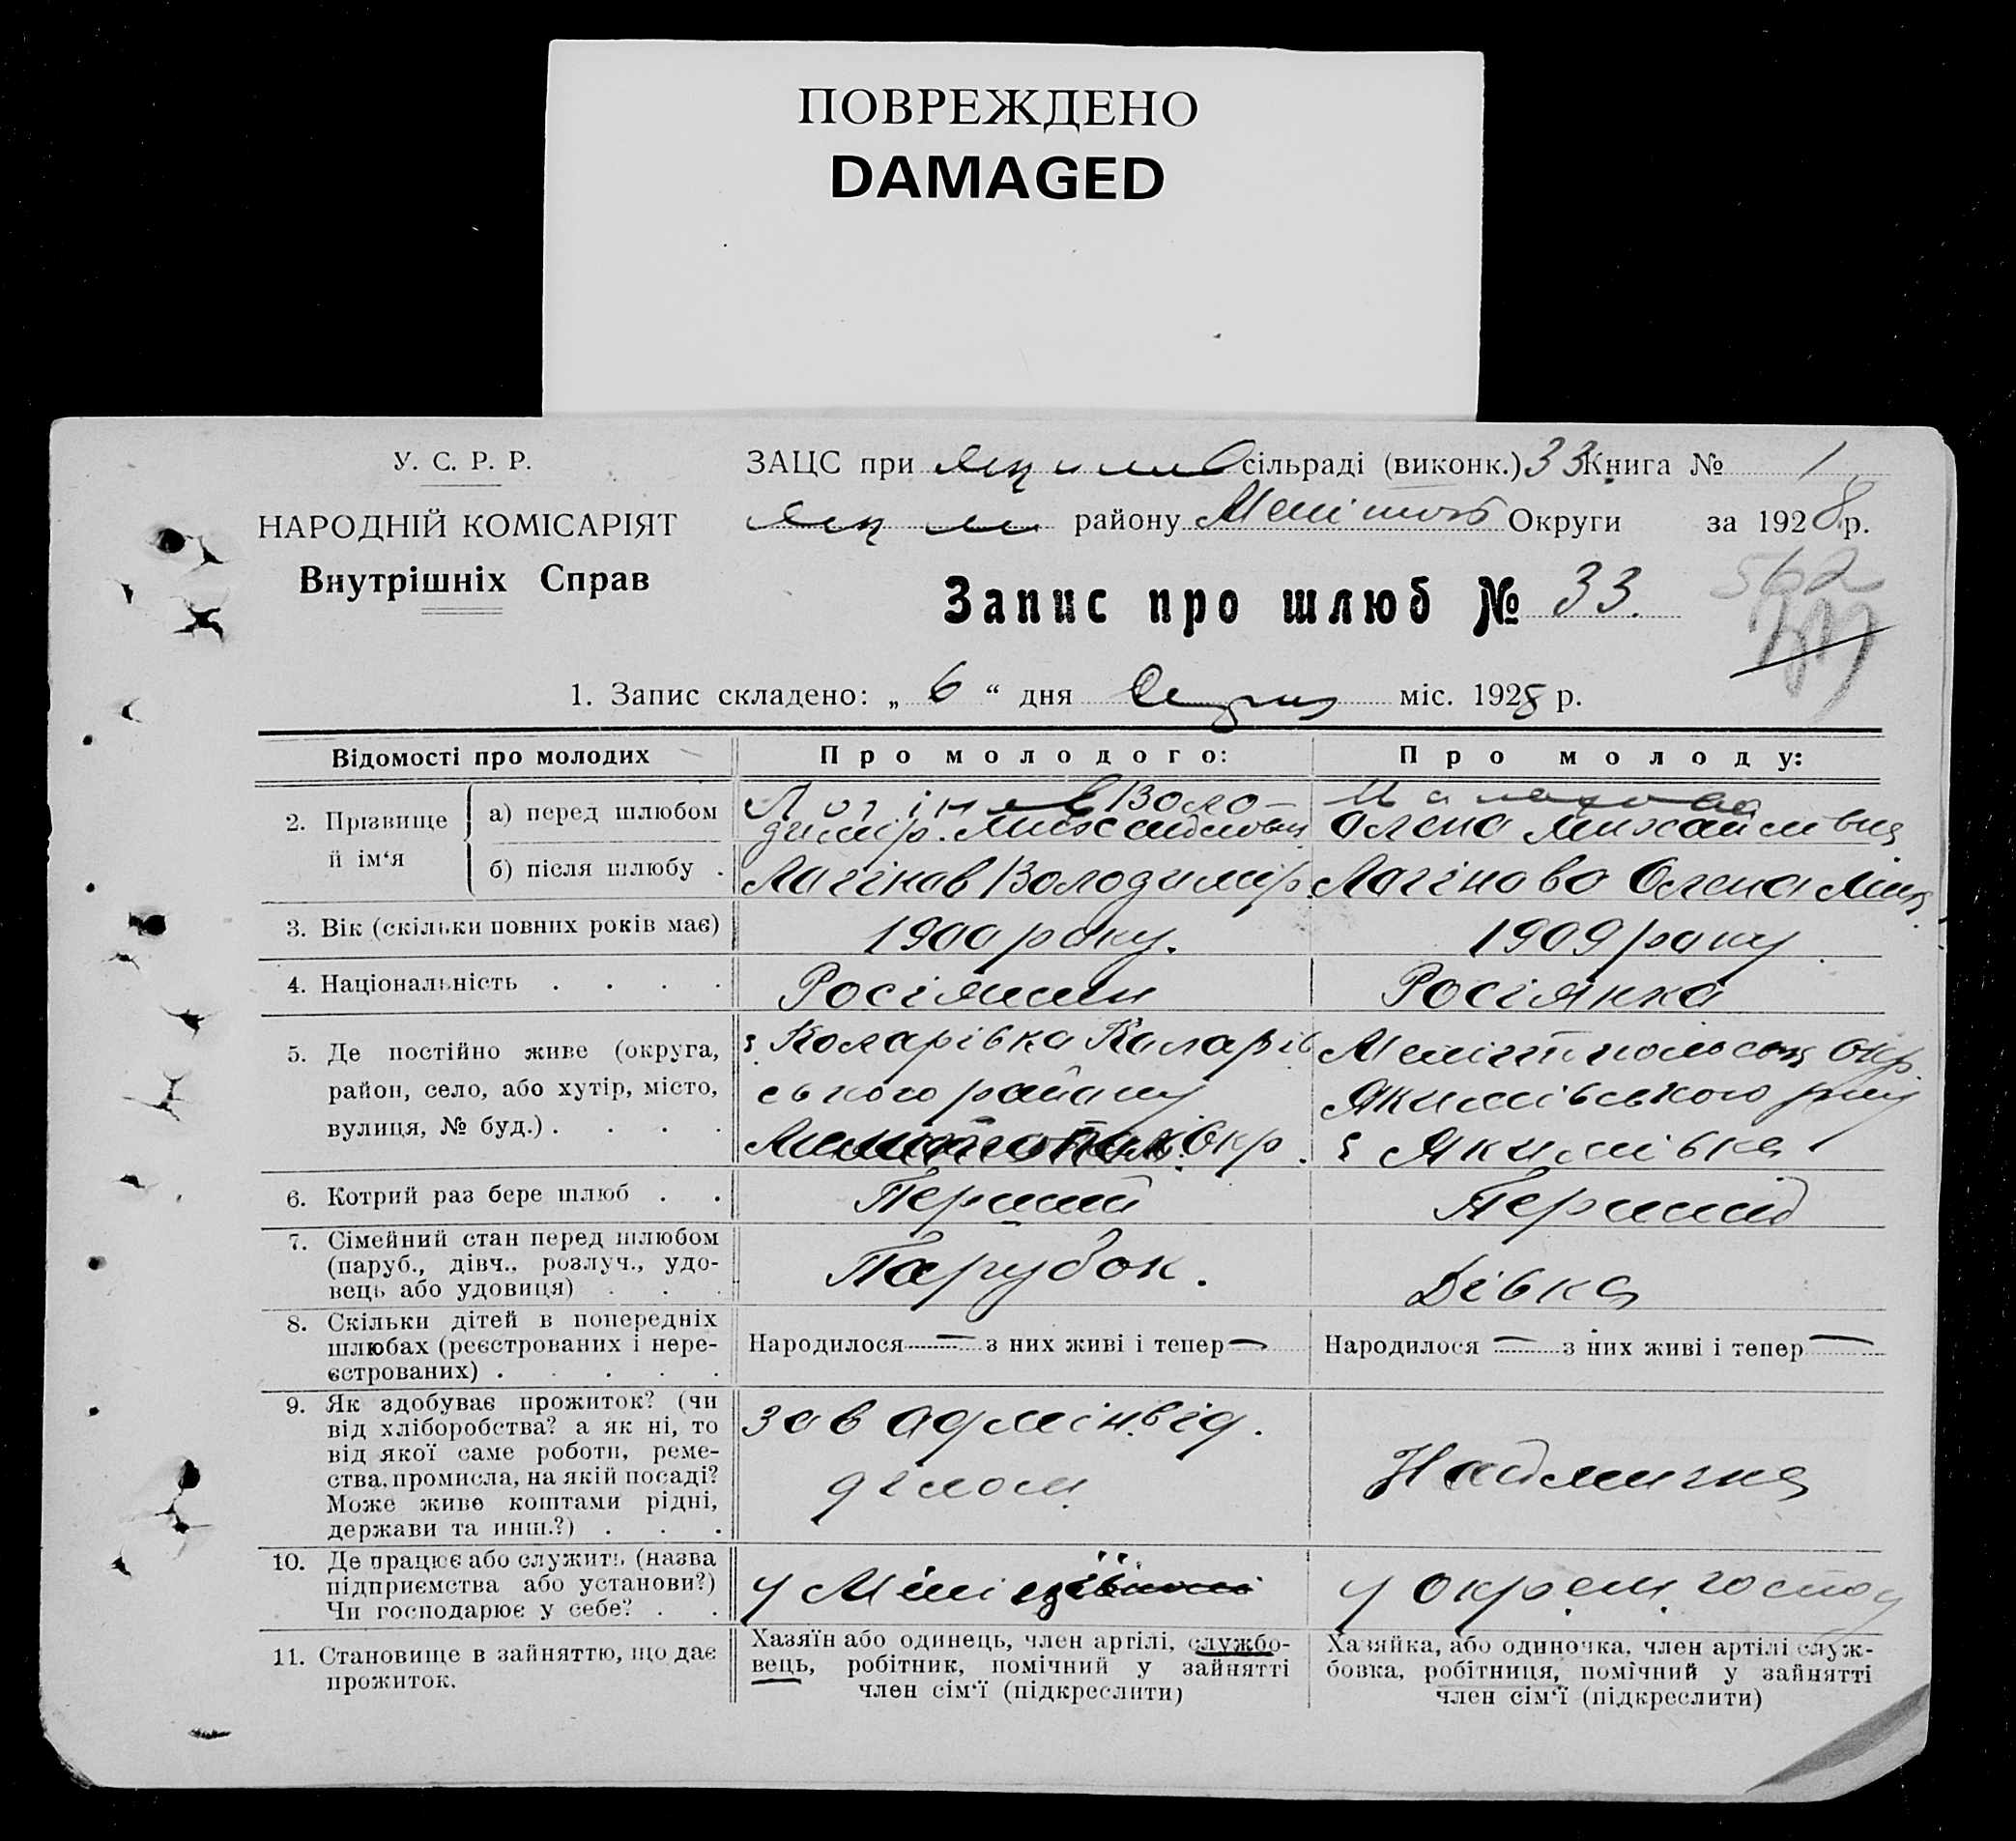 ПОВРЕЖДЕНО
DAMAGED
У. С. Р. Р.
НАРОДНІЙ КОМІСАРІЯТ
Внутрішніх Справ
ЗАЦС при сільраді (виконк.) 33 Книга № 1
району Меліт Округи за 1928 р.
Запис про шлюб № 33.
562
1. Запис складено: „ 6 “ дня міс. 1928 р.
Відомості про молодих
Про молодого:
Про молоду:
2. Прізвище й ім‘я
а) перед шлюбом
Логінов Воло-
димір.
Олена Михайлівна
б) після шлюбу .
Логінов Володимір
Логінова Олена Мих
3. Вік (скільки повних років має)
1900 року.
1909 року
4. Національність . . . .
Росіянин
Росіянка
5. Де постійно живе (округа,
район, село, або хутір, місто,
вулиця, № буд.) . . . .
с. Коларівка Коларів
ського району
Окр.
Мелітопольськ Окр.
Якимівського р-ну
с Якимівка
6. Котрий раз бере шлюб . .
Перший
Перший
7. Сімейний стан перед шлюбом
(паруб., дівч., розлуч., удо-
вець або удовиця) . . .
Парубок.
Дівка
8. Скільки дітей в попередніх
шлюбах (реєстрованих і нере-
єстрованих) . . . . .
Народилося — з них живі і тепер —
Народилося — з них живі і тепер —
9. Як здобуває прожиток? (чи
від хліборобства? а як ні, то
від якої саме роботи, реме-
ства, промисла, на якій посаді?
Може живе коштами рідні,
держави та инш.?) . . .
зав адмінвід.
ділом
Наймичка
10. Де працює або служить (назва
підприємства або установи?)
Чи господарює у себе? . .
у Міліції
у окрем. господ
11. Становище в зайняттю, що дає
прожиток.
Хазяїн або одинець, член артілі, службо-
вець, робітник, помічний у зайнятті
член сім‘ї (підкреслити)
Хазяйка, або одиночка, член артілі служ-
бовка, робітниця, помічний у зайнятті
член сім‘ї (підкреслити)